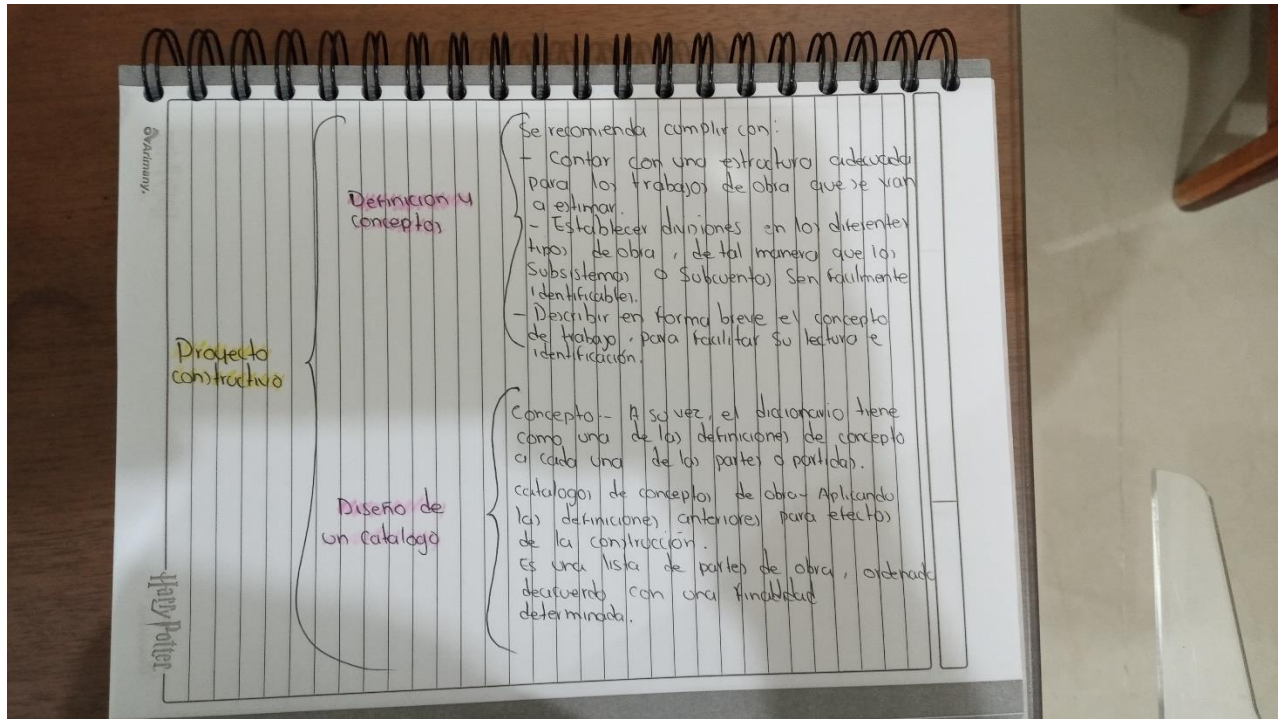 Proyecto
constructivo
Definicion y
conceptos
Se recomienda cumplir con:
- Contar con una estructura adecuada
para los trabajos de obra que se van
a estimar.
- Establecer divisiones en los diferentes
tipos de obra, de tal manera que los
subsistemas o subcuentas sen facilmente
identificables.
- Describir en forma breve el concepto
de trabajo, para facilitar su lectura e
identificación.
Diseño de
un catalogo
Concepto:- A su vez, el diccionario tiene
como una de las definiciones de concepto
a cada una de las partes o partidas.
catalogos de conceptos de obra- Aplicando
las definiciones anteriores para efectos
de la construcción.
Es una lista de partes de obra, ordenada
deacuerdo con una finalidad
determinada.
Arimany.
Harry Potter